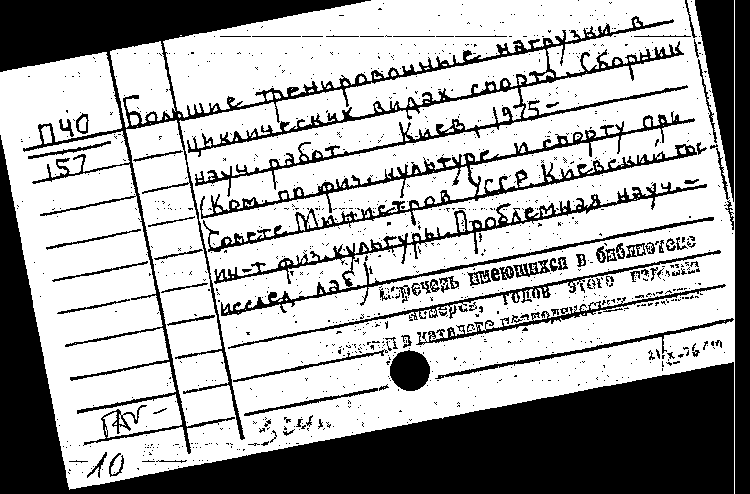 П40
157
Большие тренировочные нагрузки в
циклических видах спорта. Сборник
науч. работ. Киев, 1975-
(Ком. по физ. культуре и спорту при
Совете Министров УССР. Киевский гос.
ин-т физ. культуры. Проблемная науч.-
исслед. лаб.)
перечень имеющихся в библиотеке
номеров, годов этого издания
в каталоге периодических изданий
21/X-76
10